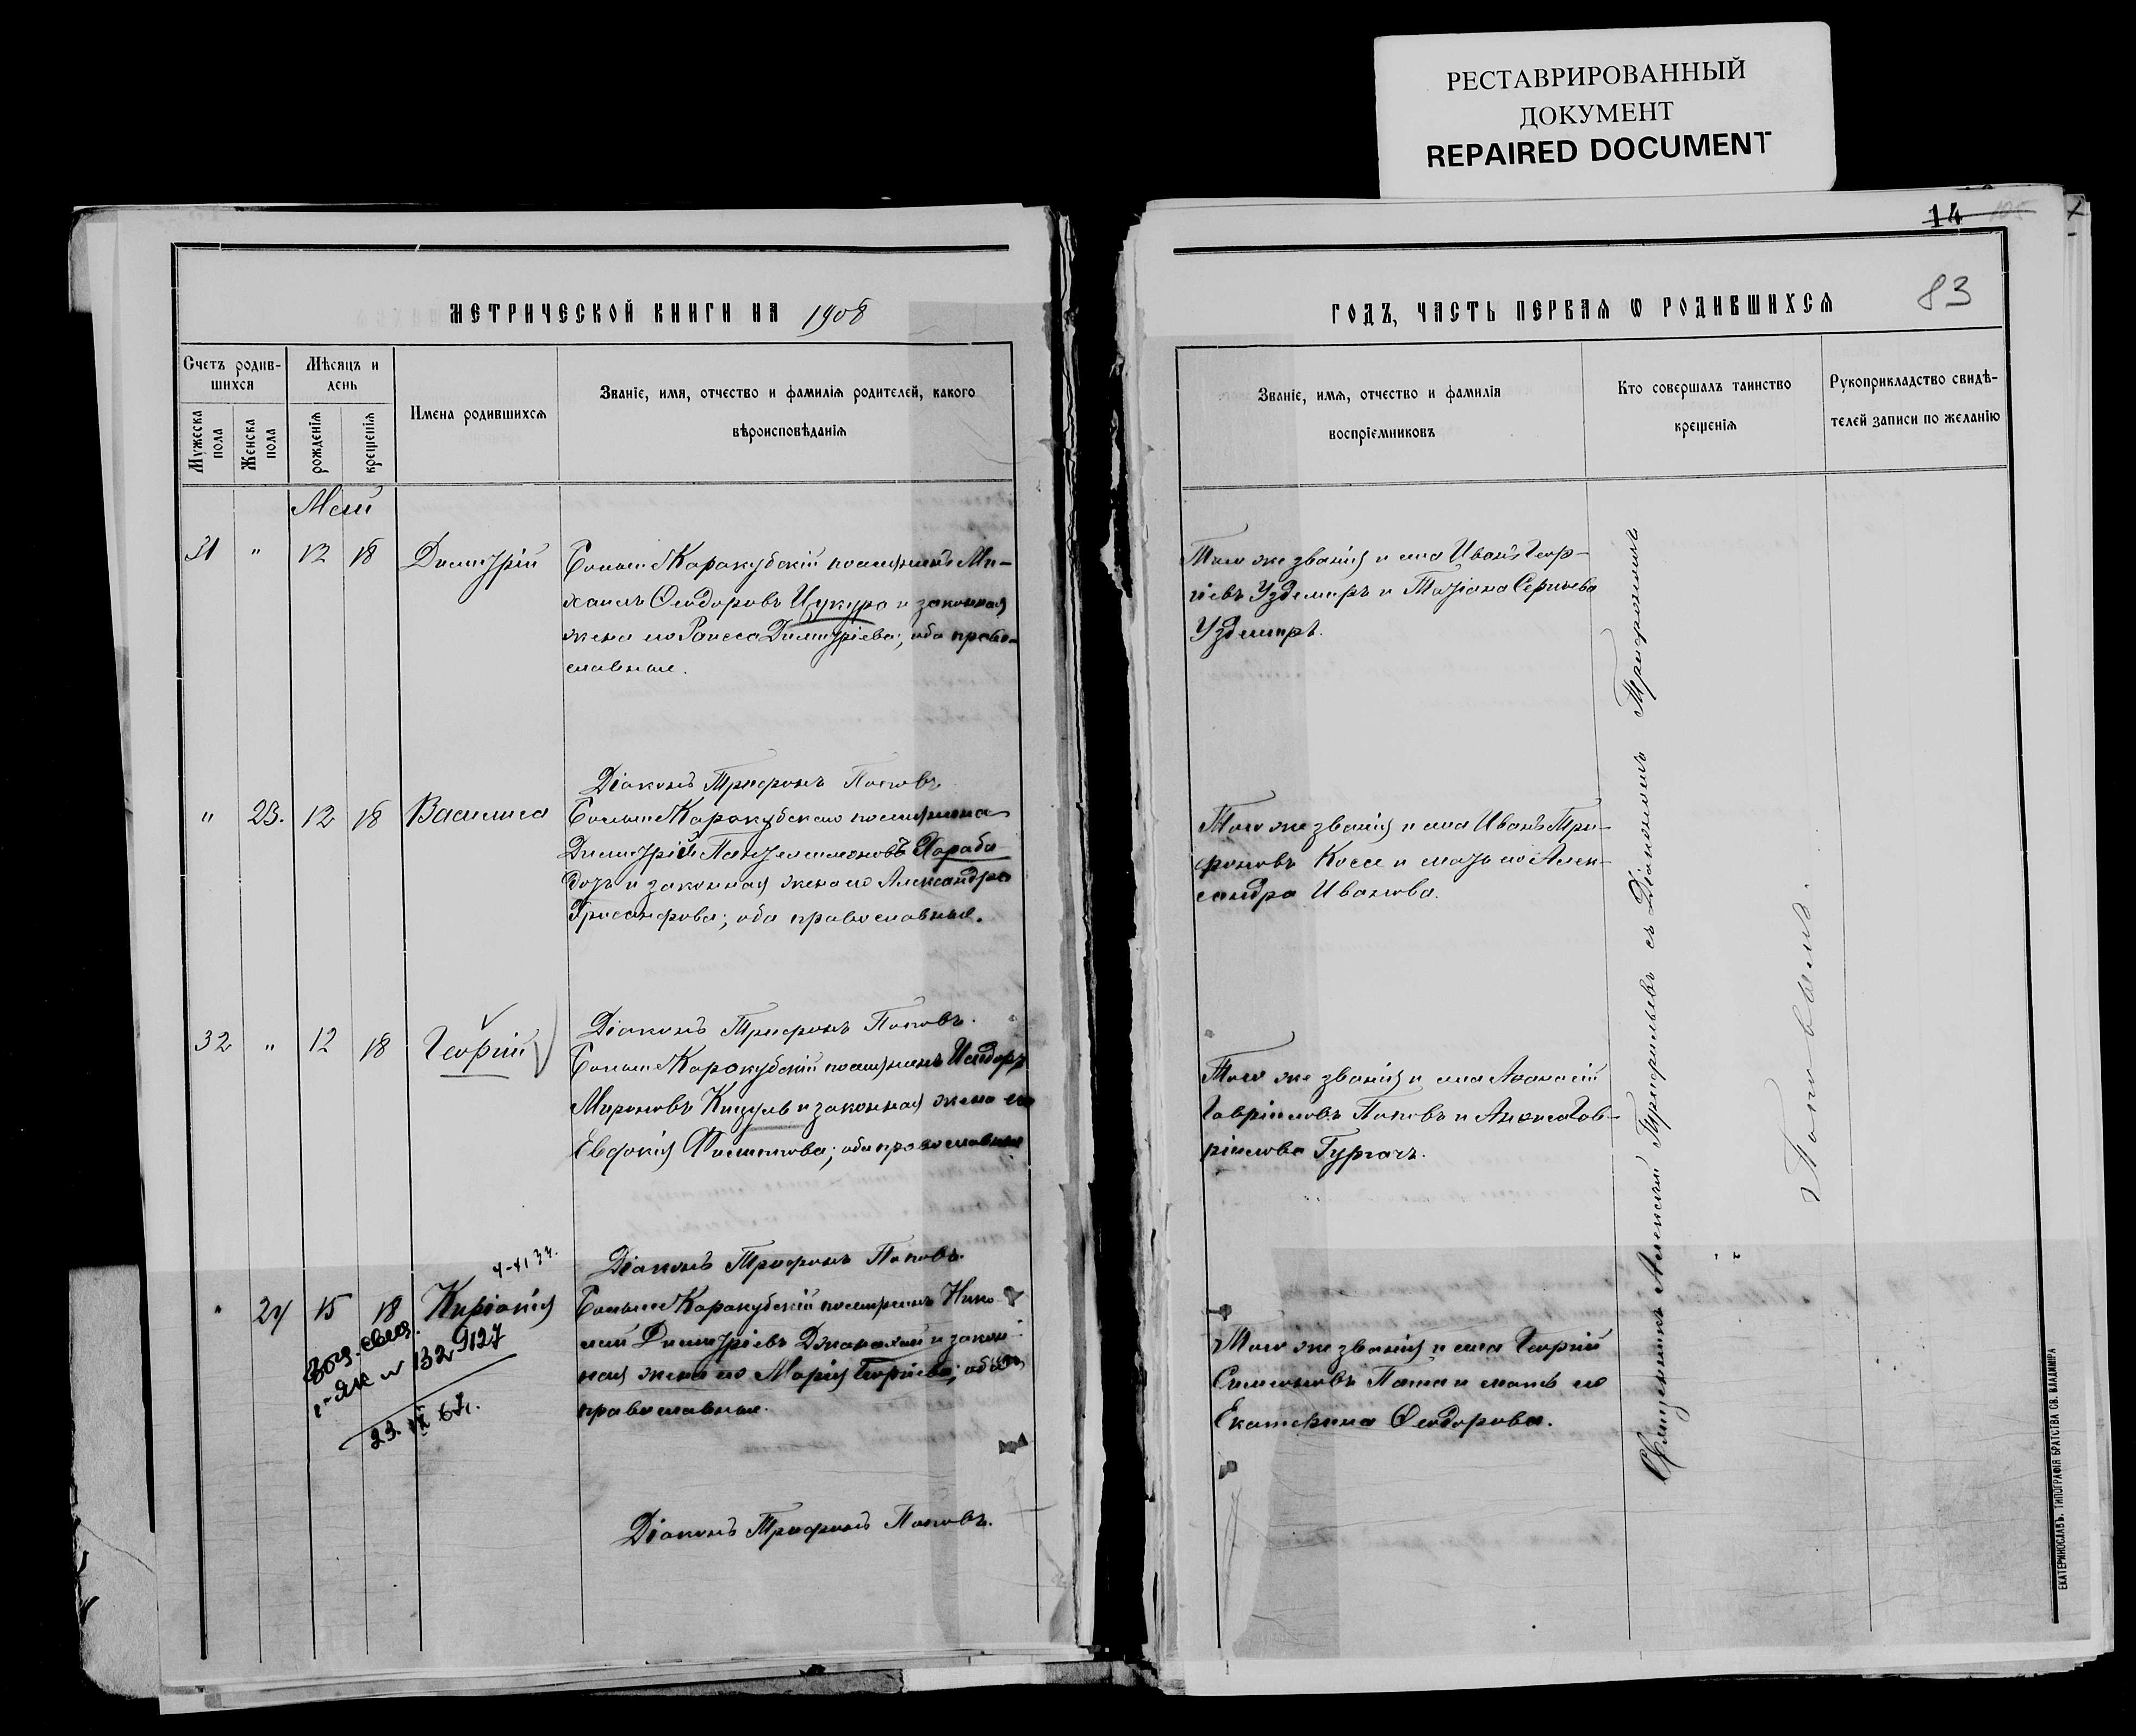 РЕСТАВРИРОВАННЫЙ
ДОКУМЕНТ
REPAIRED DOCUMENT
14
83
МЕТРИЧЕСКОЙ КНИГИ НА 1908
ГОДЪ, ЧАСТЬ ПЕРВАЯ Ѡ РОДИВШИХСЯ
Счетъ родив-
шихся
Мужеска
пола
Женска
пола
Мѣсяцъ и
день
рожденія
крещенія
Имена родившихся
Званіе, имя, отчество и фамилія родителей, какого
вѣроисповѣданія
Званіе, имя, отчество и фамилія
воспріемниковъ
Кто совершалъ таинство
крещенія
Рукоприкладство свидѣ-
телей записи по желанію
Май
31 " 12 18 Димитрій
Больше Каракубскій поселянинъ Ми-
хаилъ Ѳеодоровъ Цукура и законная
жена его Раиса Димитріева; оба право-
славные.
Того же званія и села Иванъ Геор-
гіевъ Уздемиръ и Татіана Сергіева
Уздемиръ.
Діаконъ Трифонъ Поповъ
" 23. 12 18 Василиса
Больше Каракубскаго поселянина
Димитрій Пантелеимоновъ Хараба
дотъ и законная жена его Александра
Хрисанфова; оба православные.
Того же званія и села Иванъ Три-
фоновъ Коссе и мать его Алек-
сандра Иванова.
Діаконъ Трифонъ Поповъ.
32 " 12 18 Георгій
Больше Каракубскій поселянинъ Исидоръ
Мироновъ Кицулъ и законная жена его
Евдокія Филиппова; оба православные
Того же званія и села Аѳанасій
Гавріиловъ Поповъ и Анна Гав-
ріилова Гургачъ.
Діаконъ Трифонъ Поповъ.
" 24 15 18 Киріакія
Больше Каракубскій поселянинъ Нико-
лай Димитріевъ Джанахай и закон-
ная жена его Марія Георгіева; оба
православные.
Того же званія и села Георгій
Симеоновъ Папа и мать его
Екатерина Ѳеодорова.
Діаконъ Трифонъ Поповъ.
Священникъ Алексій съ Діакономъ Трифономъ
Поповымъ.
ЕКАТЕРИНОСЛАВЪ. ТИПОГРАФІЯ БРАТСТВА СВ. ВЛАДИМІРА